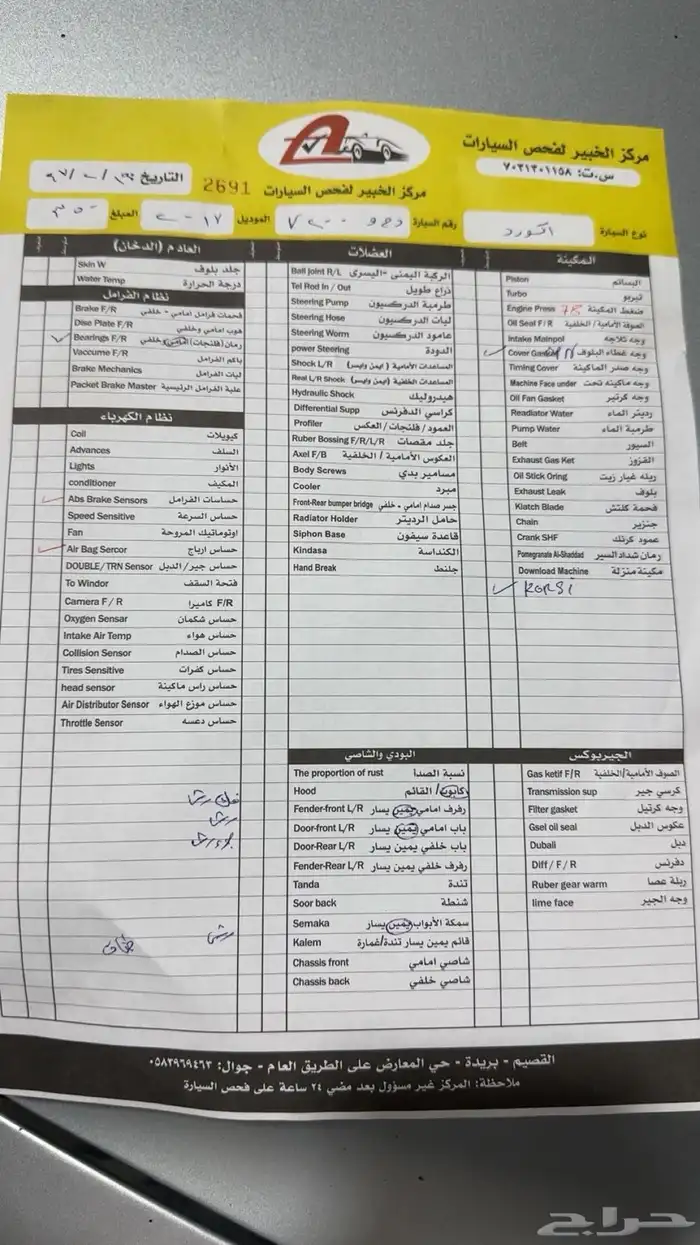 مركز الخبير لفحص السيارات
س.ت: ٧٠٣١٣٠١١٥٨
مركز الخبير لفحص السيارات
2691
التاريخ
نوع السيارة اكورد
رقم السيارة
الموديل
المبلغ ٣٥٠
المكينة
Piston البساتم
Turbo تيربو
Engine Press 75 ضغط المكينة
Oil Seal F/R الصوفة الأمامية/الخلفية
Intake Mainpol وجه ثلاجه
Cover Gasket وجه غطاء البلوف
Timing Cover وجه صدر الماكينة
Machine Face under وجه ماكينه تحت
Oil Fan Gasket وجه كرتير
Readiator Water رديتر الماء
Pump Water طرمبة الماء
Belt السيور
Exhaust Gas Ket القزوز
Oil Stick Oring ربله غيار زيت
Exhaust Leak بلوف
Klatch Blade فحمة كلتش
Chain جنزير
Crank SHF عمود كرنك
Pomegranate Al-Shaddad رمان شداد السير
Download Machine مكينة منزلة
KORSI
العضلات
Ball Joint R/L الركبة اليمنى -اليسرى
Tel Rod In / Out ذراع طويل
Steering Pump طرمبة الدركسيون
Steering Hose ليات الدركسيون
Steering Worm عامود الدركسيون
power Steering الدودة
Shock L/R المساعدات الأمامية (ايمن وايسر)
Real L/R Shock المساعدات الخلفية (ايمن وايسر)
Hydraulic Shock هيدروليك
Differential Supp كراسي الدفرنس
Profiler العمود/فلنجات/العكس
Ruber Bossing F/R/L/R جلد مقصات
Axel F/B العكوس الأمامية / الخلفية
Body Screws مسامير بدي
Cooler مبرد
Front-Rear bumper bridge جسر صدام امامي - خلفي
Radiator Holder حامل الرديتر
Siphon Base قاعدة سيفون
Kindasa الكنداسة
Hand Break جلنط
العادم (الدخان)
Skin W جلد بلوف
Water Temp درجة الحرارة
نظام الفرامل
Brake F/R فحمات فرامل امامي - خلفي
Dise Plate F/R هوب امامي وخلفي
Bearings F/R رمان (فلنجات) امامي/خلفي
Vaccume F/R باكم الفرامل
Brake Mechanics ليات الفرامل
Packet Brake Master علبة الفرامل الرئيسية
نظام الكهرباء
Coil كويلات
Advances السلف
Lights الأنوار
conditioner المكيف
Abs Brake Sensors حساسات الفرامل
Speed Sensitive حساس السرعة
Fan اوتوماتيك المروحة
Air Bag Sercor حساس ارباج
DOUBLE/ TRN Sensor حساس جير/الدبل
To Windor فتحة السقف
Camera F / R كاميرا F/R
Oxygen Sensar حساس شكمان
Intake Air Temp حساس هواء
Collision Sensor حساس الصدام
Tires Sensitive حساس كفرات
head sensor حساس راس ماكينة
Air Distributor Sensor حساس موزع الهواء
Throttle Sensor حساس دعسه
الجيربوكس
Gas ketif F/R الصوف الأمامية/الخلفية
Transmission sup كرسي جير
Filter gasket وجه كرتيل
Gsel oil seal عكوس الدبل
Dubali دبل
Diff / F / R دفرنس
Ruber gear warm ربلة عصا
lime face وجه الجير
البودي والشاصي
The proportion of rust نسبة الصدأ
Hood كابوت/ القائم
Fender-front L/R رفرف امامي يمين يسار
Door-front L/R باب امامي يمين يسار
Door-Rear L/R باب خلفي يمين يسار
Fender-Rear L/R رفرف خلفي يمين يسار
Tanda تندة
Soor back شنطة
Semaka سمكة الأبواب يمين يسار
Kalem قائم يمين يسار تندة/غمارة
Chassis front شاصي امامي
Chassis back شاصي خلفي
فك رش
رش
رش
القصيم - بريدة - حي المعارض على الطريق العام - جوال: ٠٥٨٣٩٦٩٤٦٣
ملاحظة: المركز غير مسؤول بعد مضي ٢٤ ساعة على فحص السيارة
حراج